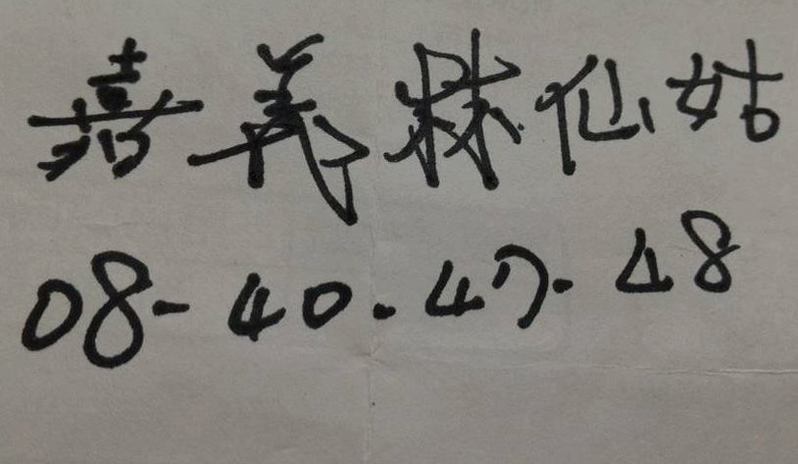 嘉義林仙姑
08-40.47.48